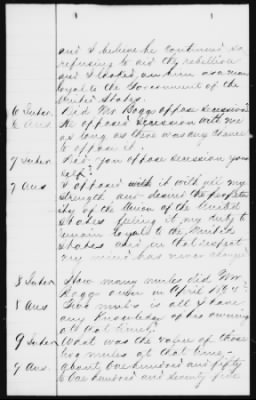 and I believe he continued so
refusing to aid the rebellion
and I looked on him as a man
loyal to the Government of the
United States.
6 Inter. Did Mr Boggs oppose secession
6 Ans He opposed secession with me
as long as there was any chance
to oppose it.
7 Inter Did you oppose secession your
self?
7 Ans I opposed with it with all my
strength and desired the perpetu
ity of the Union of the United
States feeling it my duty to
remain loyal to the United
States and in that respect
my mind has never changed
8 Inter How many mules did Mr
Boggs own in April 1864?
8 Ans Two mules is all I have
any knowledge of his owning
at that time.
9 Inter What was the value of those
two mules at that time.
9 Ans. About One hundred and fifty
to One hundred and seventy five